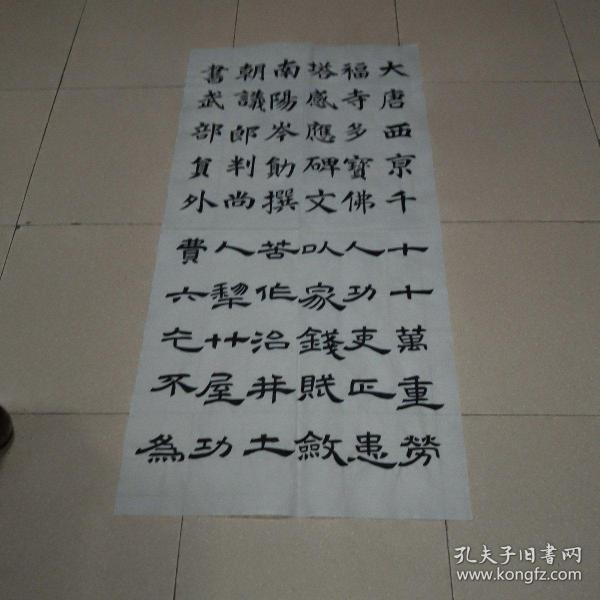 大唐西京千
福寺多寶佛
塔感應碑文
南陽岑勛撰
朝議郎判尚
書武部員外
十十萬重勞
人功吏正患
以家錢賦斂
苦作治并土
人犁廿屋功
費六不為
孔夫子旧書网
www.kongfz.com